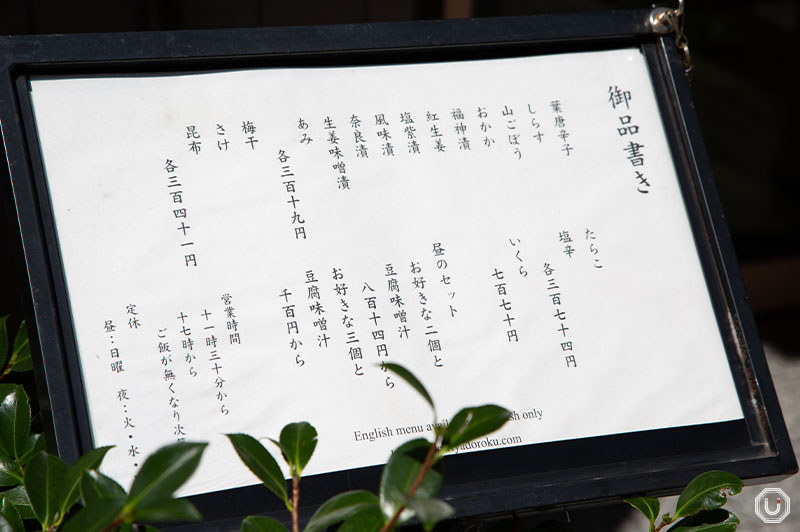 御品書き
葉唐辛子
しらす
山ごぼう
おかか
福神漬
紅生姜
塩紫漬
風味漬
奈良漬
生姜味噌漬
あみ
各三百十九円
梅干
さけ
昆布
各三百四十一円
たらこ
塩辛
各三百七十四円
いくら
七百七十円
昼のセット
お好きな二個と
豆腐味噌汁
八百十四円から
お好きな三個と
豆腐味噌汁
千百円から
営業時間
十一時三十分から
十七時から
ご飯が無くなり次第
定休
昼：日曜 夜：火・水・
English menu only
yadoroku.com